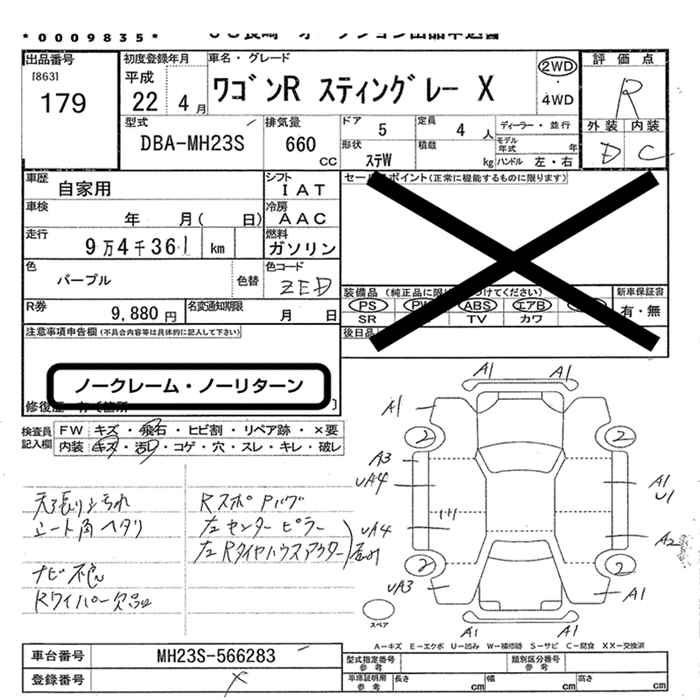 *0009835*
出品番号 初度登録年月 車名・グレード 2WD 評価点
[863] 平成
179 22 4月 ワゴンR スティングレー X ・ 4WD R
型式 排気量 ドア 定員 ディーラー・並行 外装 内装
DBA-MH23S 660 cc 5 4人 モデル年式 年 D C
形状 積載 ハンドル 左・右
ステW kg
車歴 自家用 シフト IAT セールスポイント(正常に機能するものに限ります)
車検 年 月( 日) 冷房 AAC
走行 9万4千361 km 燃料 ガソリン
色 パープル 色替 色コード ZED
装備品 新車保証書
PS PW ABS エアB 有・無
SR TV カワ
R券 9,880円 名変通知期限 月 日
後日品
注意事項申告欄(不具合内容等は具体的に記入して下さい)
ノークレーム・ノーリターン
検査員記入欄 FW キズ・飛石・ヒビ割・リペア跡・×要
内装 キズ・汚レ・コゲ・穴・スレ・キレ・破レ
天張りシヨれ RスポPハグ
シート角ヘタリ 左センターピラー
左Rタイヤハウスアウター
ナビ不良
Rワイパー欠品
A1 A1
A1 2 2
A3
UA4 A1
U1
UA4 A2
2 2
UA3 A1
A1 A1
スペア
A―キズ E―エクボ U―凹み W―補修跡 S―サビ C―腐食 XX―交換済
車台番号 MH23S-566283 型式指定番号 参考 類別区分番号 参考
登録番号 × 車庫証明用 参考 長さ cm 幅 cm 高さ cm